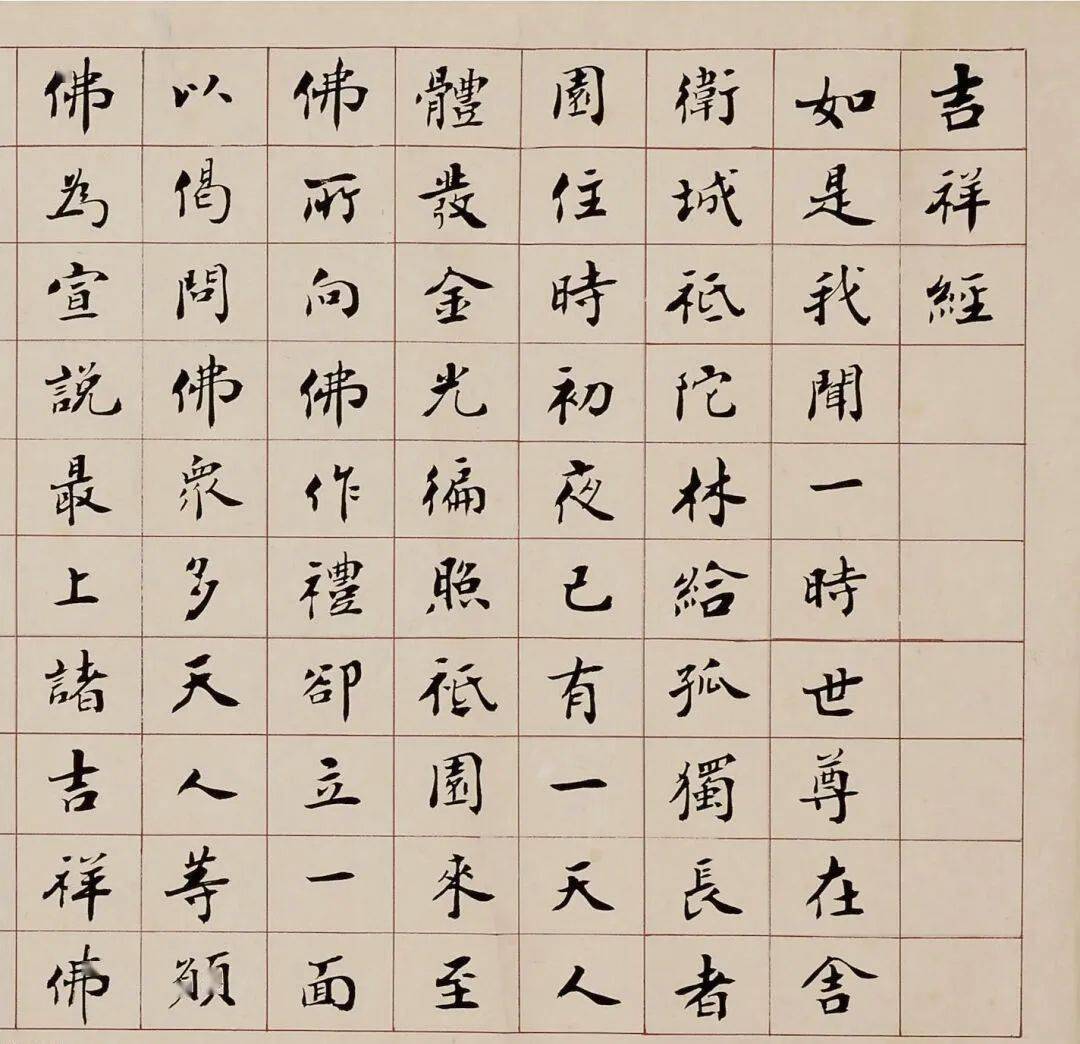 吉祥經
如是我聞一時世尊在舍
衛城祇陀林給孤獨長者
園住時初夜已有一天人
體發金光徧照祇園來至
佛所向佛作禮卻立一面
以偈問佛眾多天人等願
佛為宣說最上諸吉祥佛